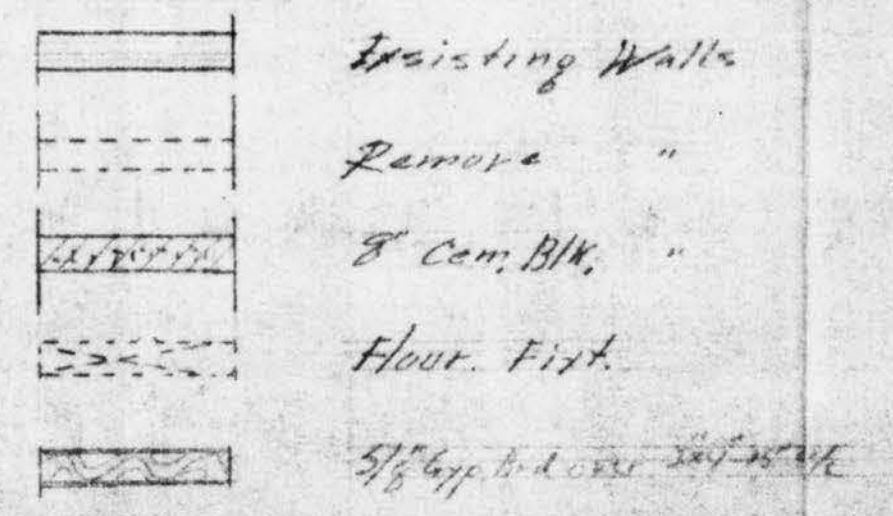 Exsisting Walls
Remove "
8" Cem. Blk. "
Flour. Fixt.
5/8" Gyp. brd over